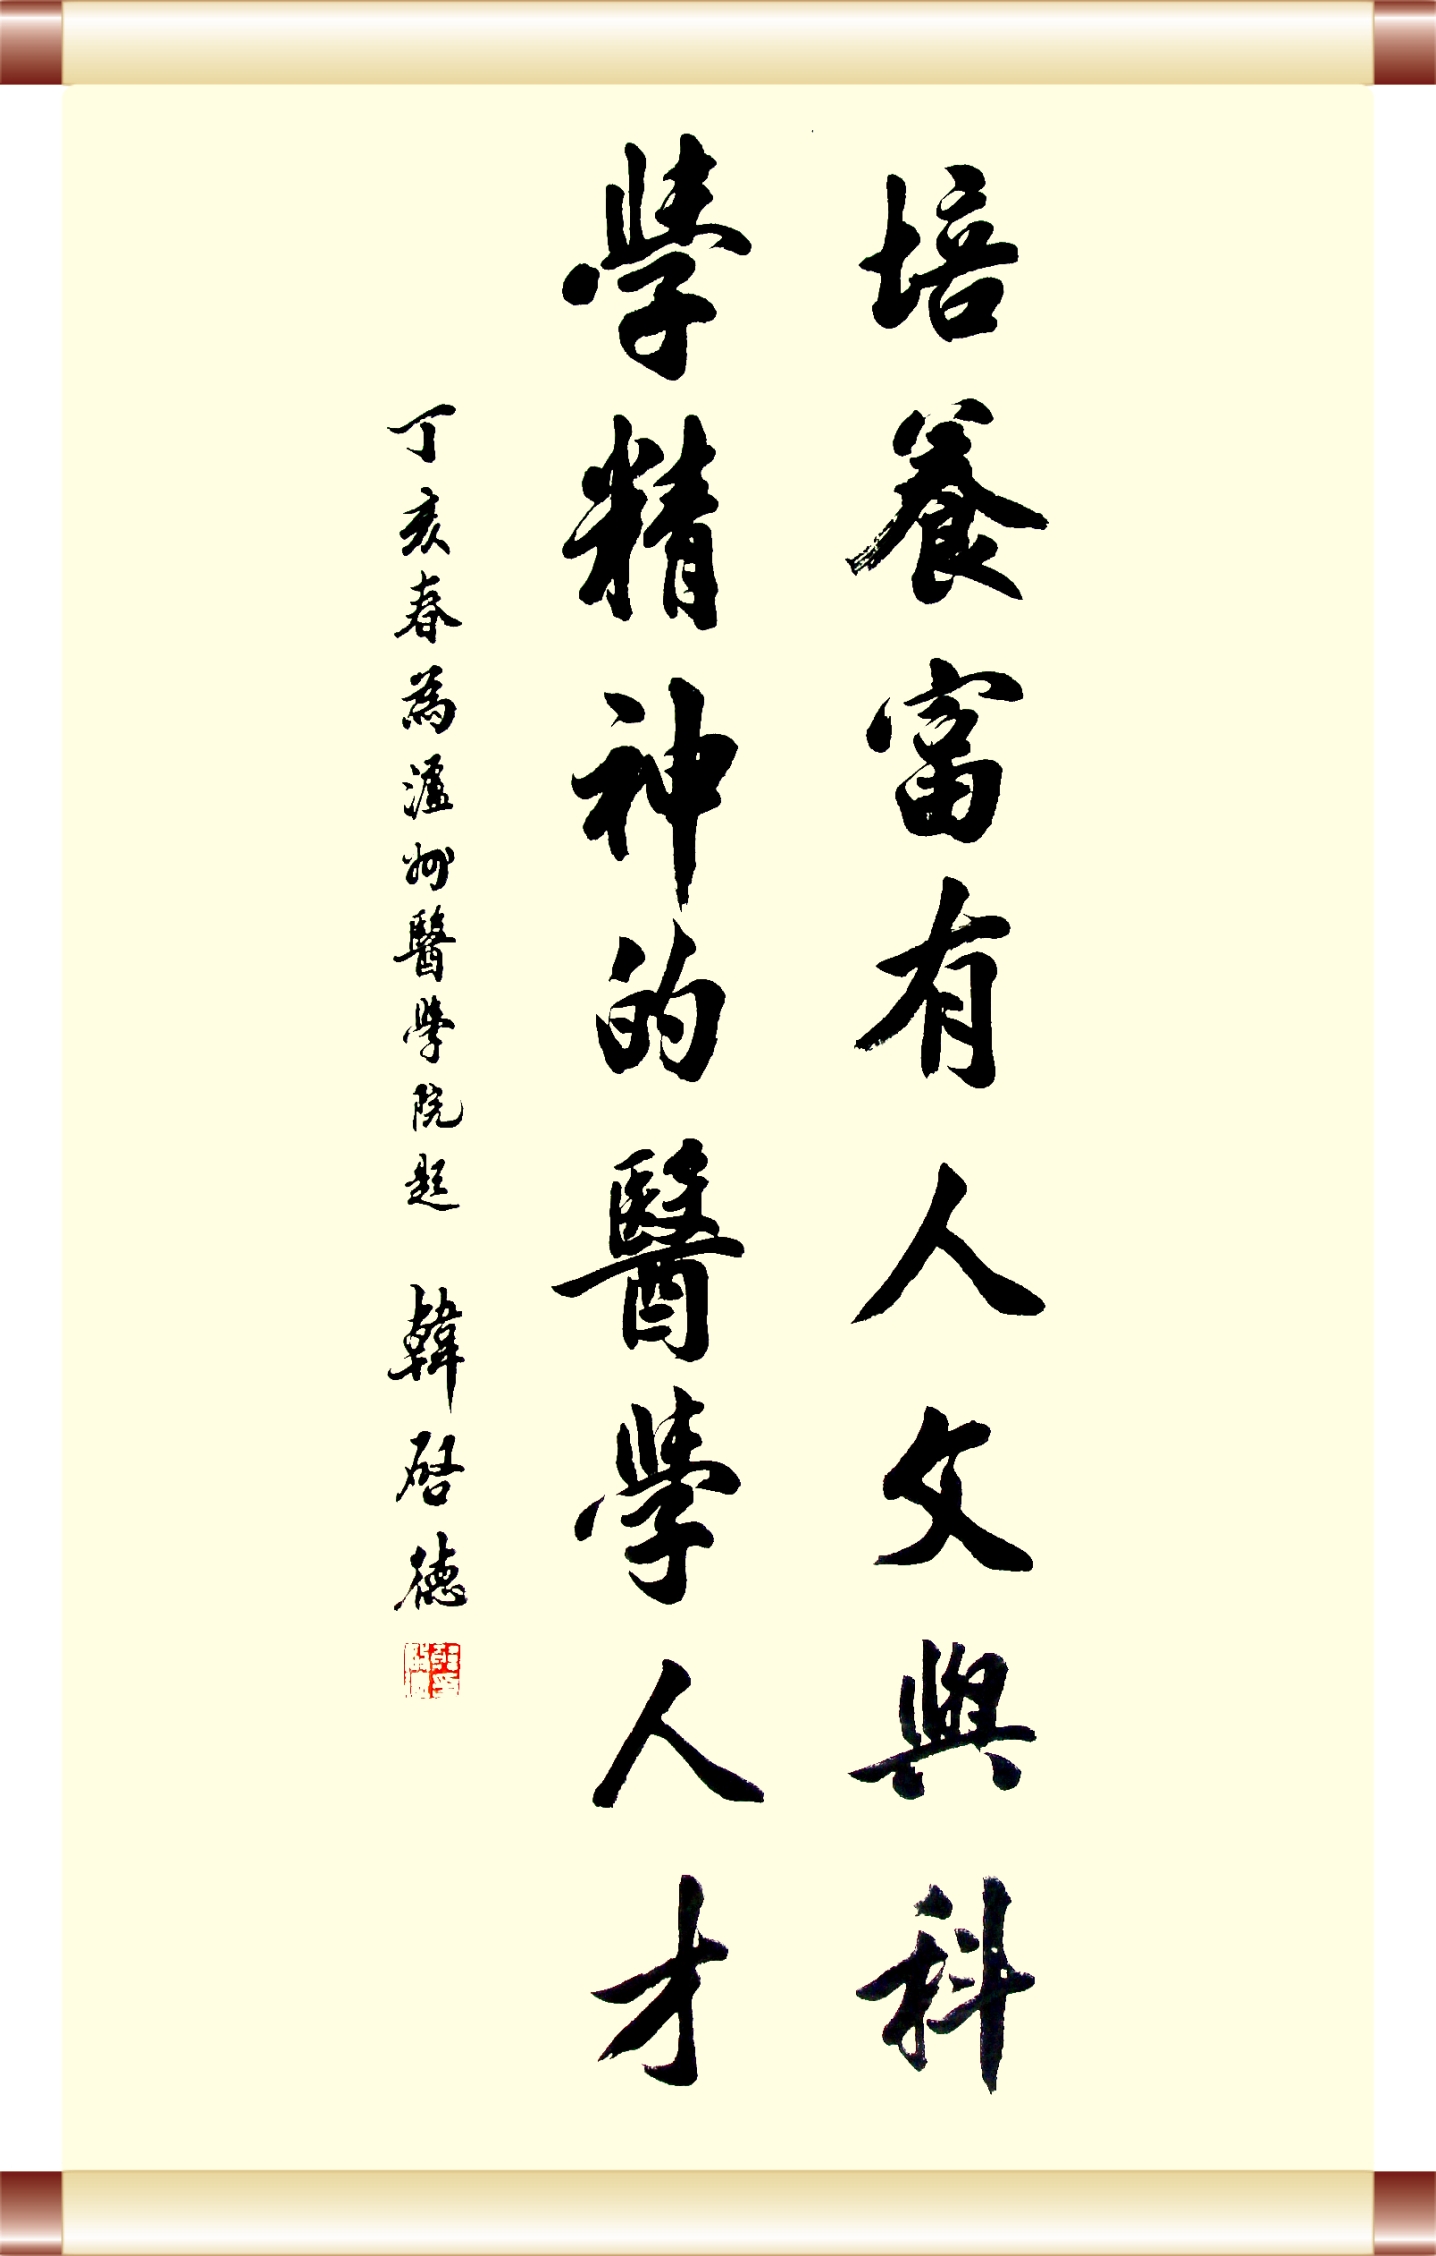 培養富有人文與科
學精神的醫學人才
丁亥春為瀘州醫學院題 韓啓德